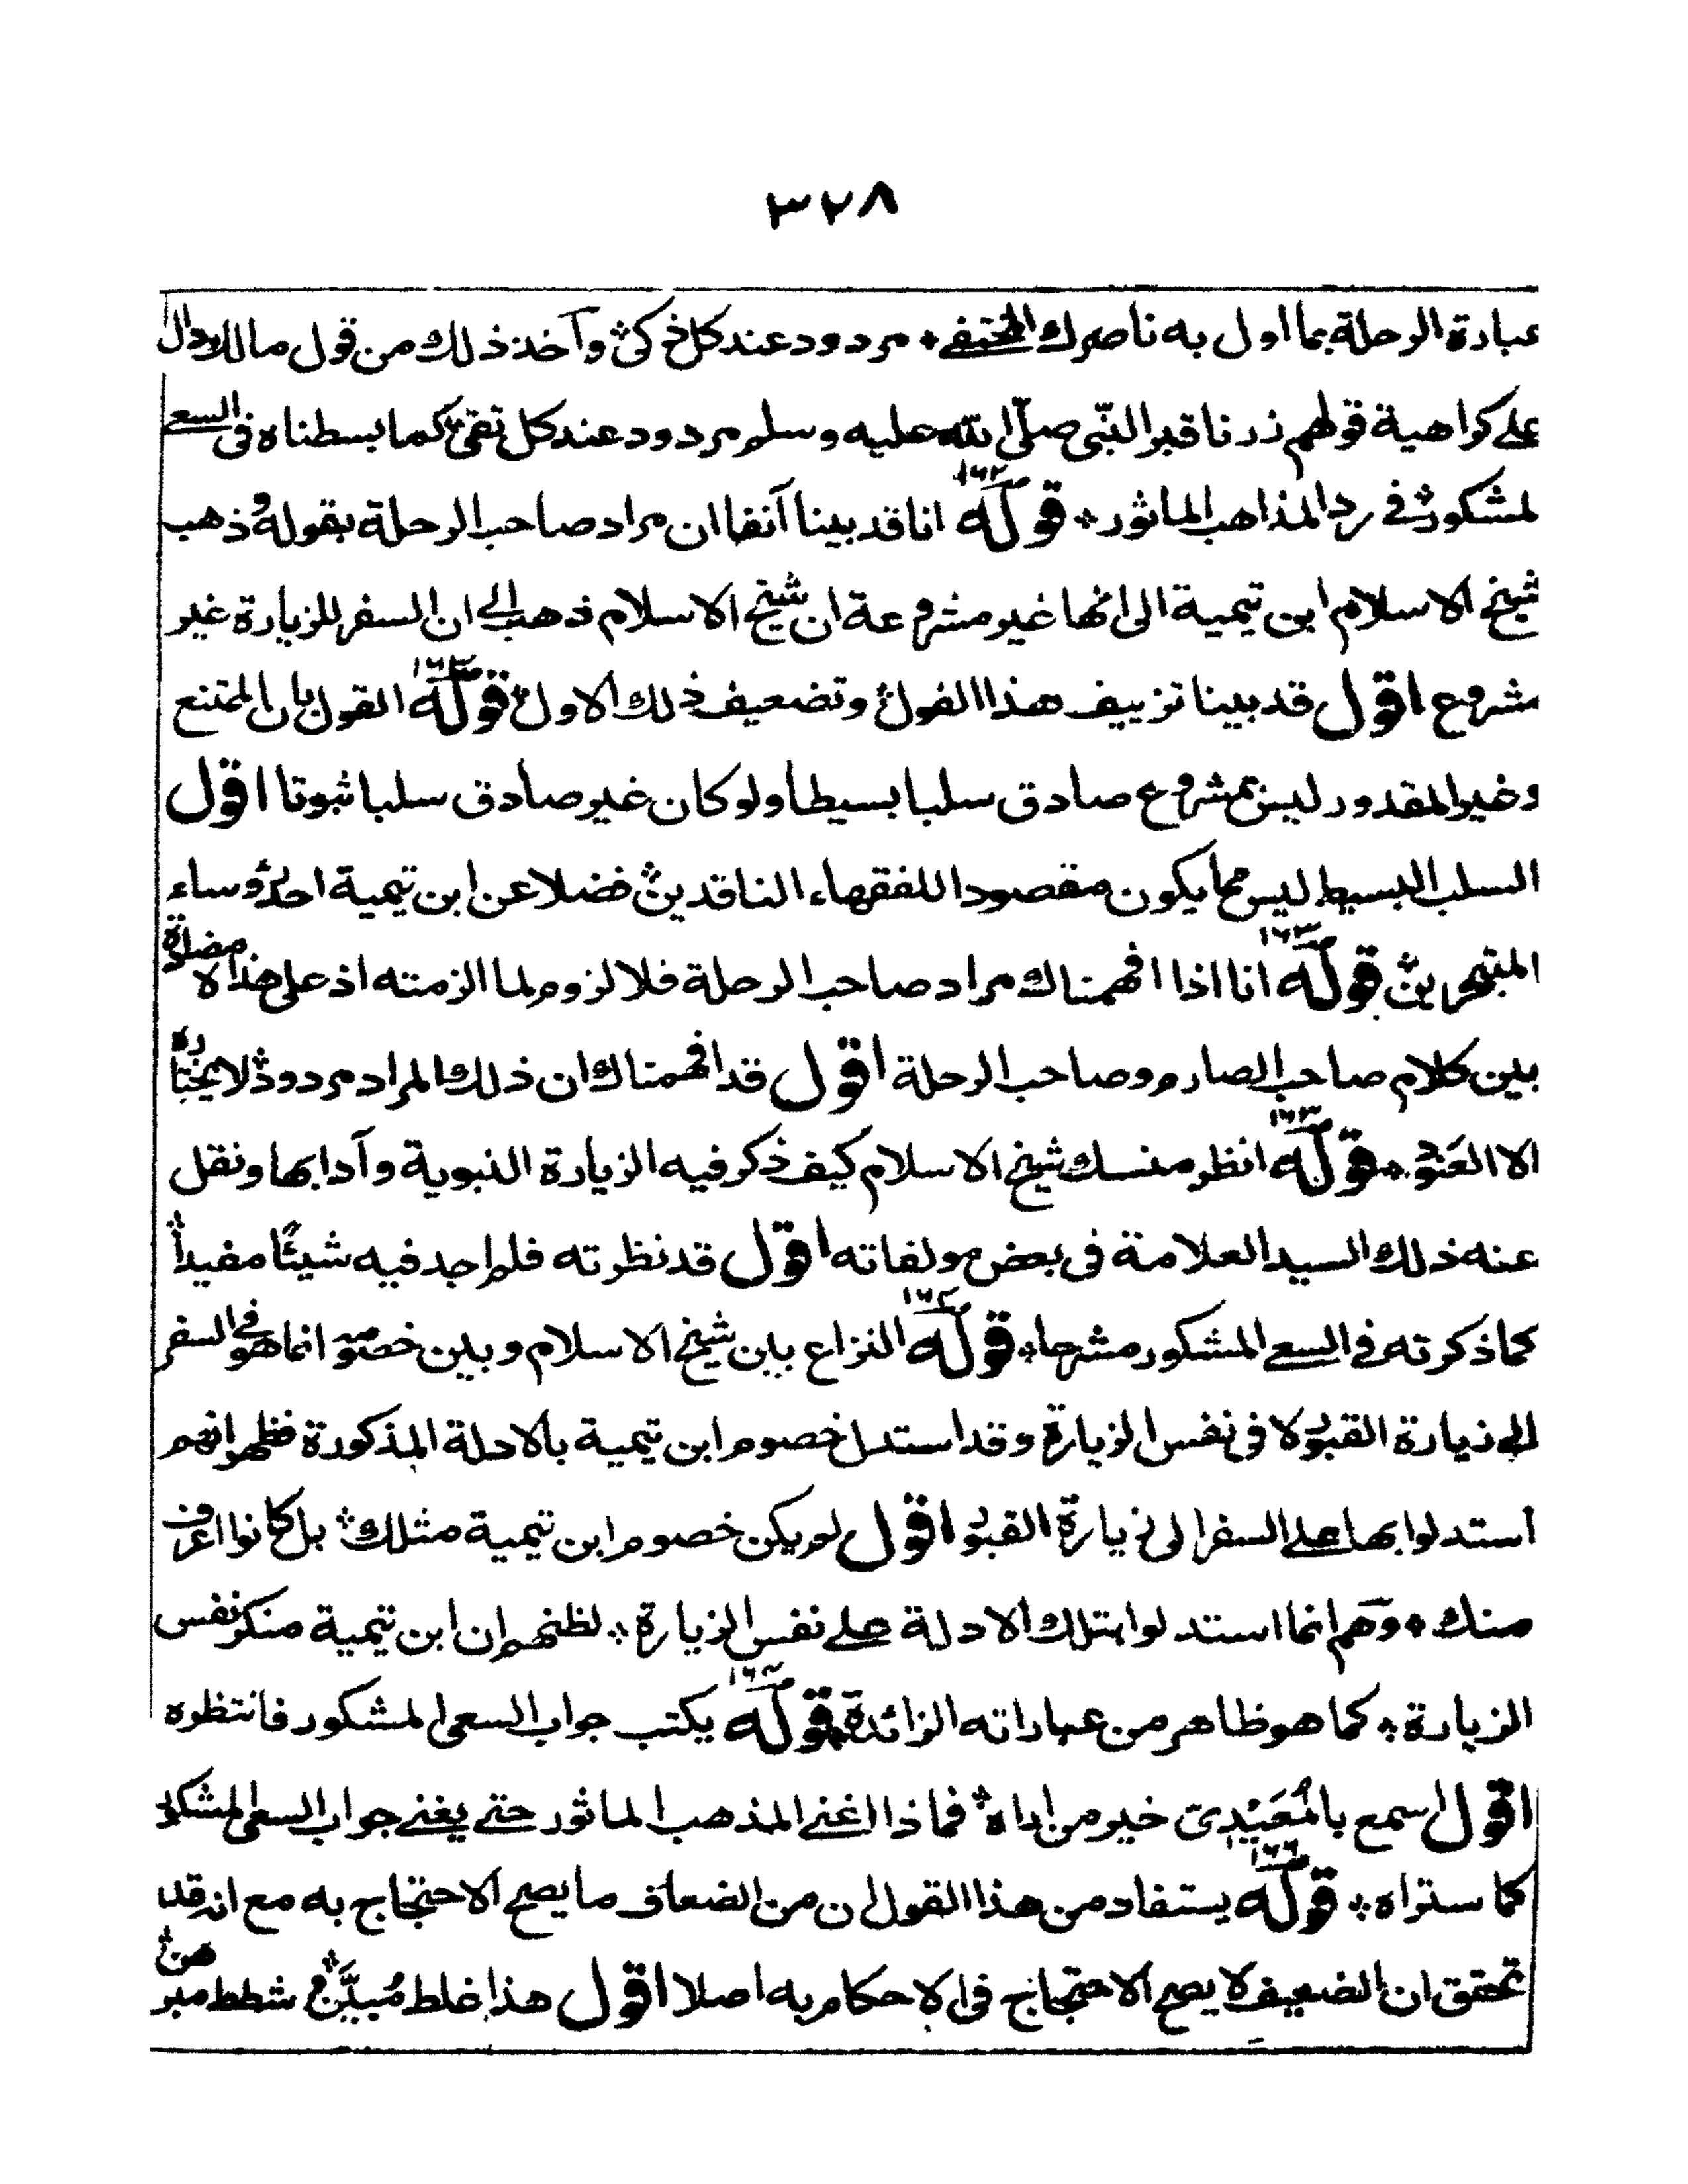 ٣٢٨
عبارة الرحلة بما اول به ناصرك المختفى مردود عند كل ذكى وآخذ ذلك من قول مالك دال
على كراهية قولهم زرنا قبر النبى صلى الله عليه وسلم مردود عند كل تقى كما بسطناه فى السعى
لمشكور فى رد المذاهب الماثور قوله ١٦٢ انا قد بينا آنفا ان مراد صاحب الرحلة بقوله وذهب
شيخ الاسلام ابن تيمية الى انها غير مشروعة ان شيخ الاسلام ذهب الى ان السفر للزيارة غير
مشروع اقول قد بينا تزييف هذا القول وتضعيف ذلك الاول قوله القول بان الممتنع
وغير المقدور ليس بمشروع صادق سلبا بسيطا ولو كان غير صادق سلبا ثبوتا اقول
السلب البسيط ليس مما يكون مقصودا للفقهاء الناقدين فضلا عن ابن تيمية احد رؤساء
المتبحرين قوله انا اذا افهمناك مراد صاحب الرحلة فلا لزوم لما الزمته اذ على هذا لا مضادة
بين كلام صاحب الصارم وصاحب الرحلة اقول قد افهمناك ان ذلك المراد مردود لا يختاره
الا العنود قوله انظر منسك شيخ الاسلام كيف ذكر فيه الزيارة النبوية وآدابها ونقل
عنه ذلك السيد العلامة فى بعض مولفاته اقول قد نظرته فلم اجد فيه شيئًا مفيدا
كما ذكرته فى السعى المشكور مشرحا قوله النزاع بين شيخ الاسلام وبين خصومه انما هو فى السفر
الى زيارة القبور لا فى نفس الزيارة وقد استدل خصوم ابن تيمية بالادلة المذكورة فظهر انهم
استدلوا بها على السفر الى زيارة القبور اقول لم يكن خصوم ابن تيمية مثلك بل كانوا اعرف
منك وهم انما استدلوا بتلك الادلة على نفس الزيارة لظنهم ان ابن تيمية منكر نفس
الزيارة كما هو ظاهر من عباراته الزائدة قوله يكتب جواب السعى المشكور فانتظره
اقول اسمع بالمُعَيْدِى خير من ان تراه فماذا اغنى المذهب الماثور حتى يغنى جواب السعى المشكور
كما ستراه قوله ١٦٦ يستفاد من هذا القول ان من الضعاف ما يصح الاحتجاج به مع انه قد
تحقق ان الضعيف لا يصح الاحتجاج فى الاحكام به اصلا اقول هذا غلط مُبيَّن شطط مبرهن